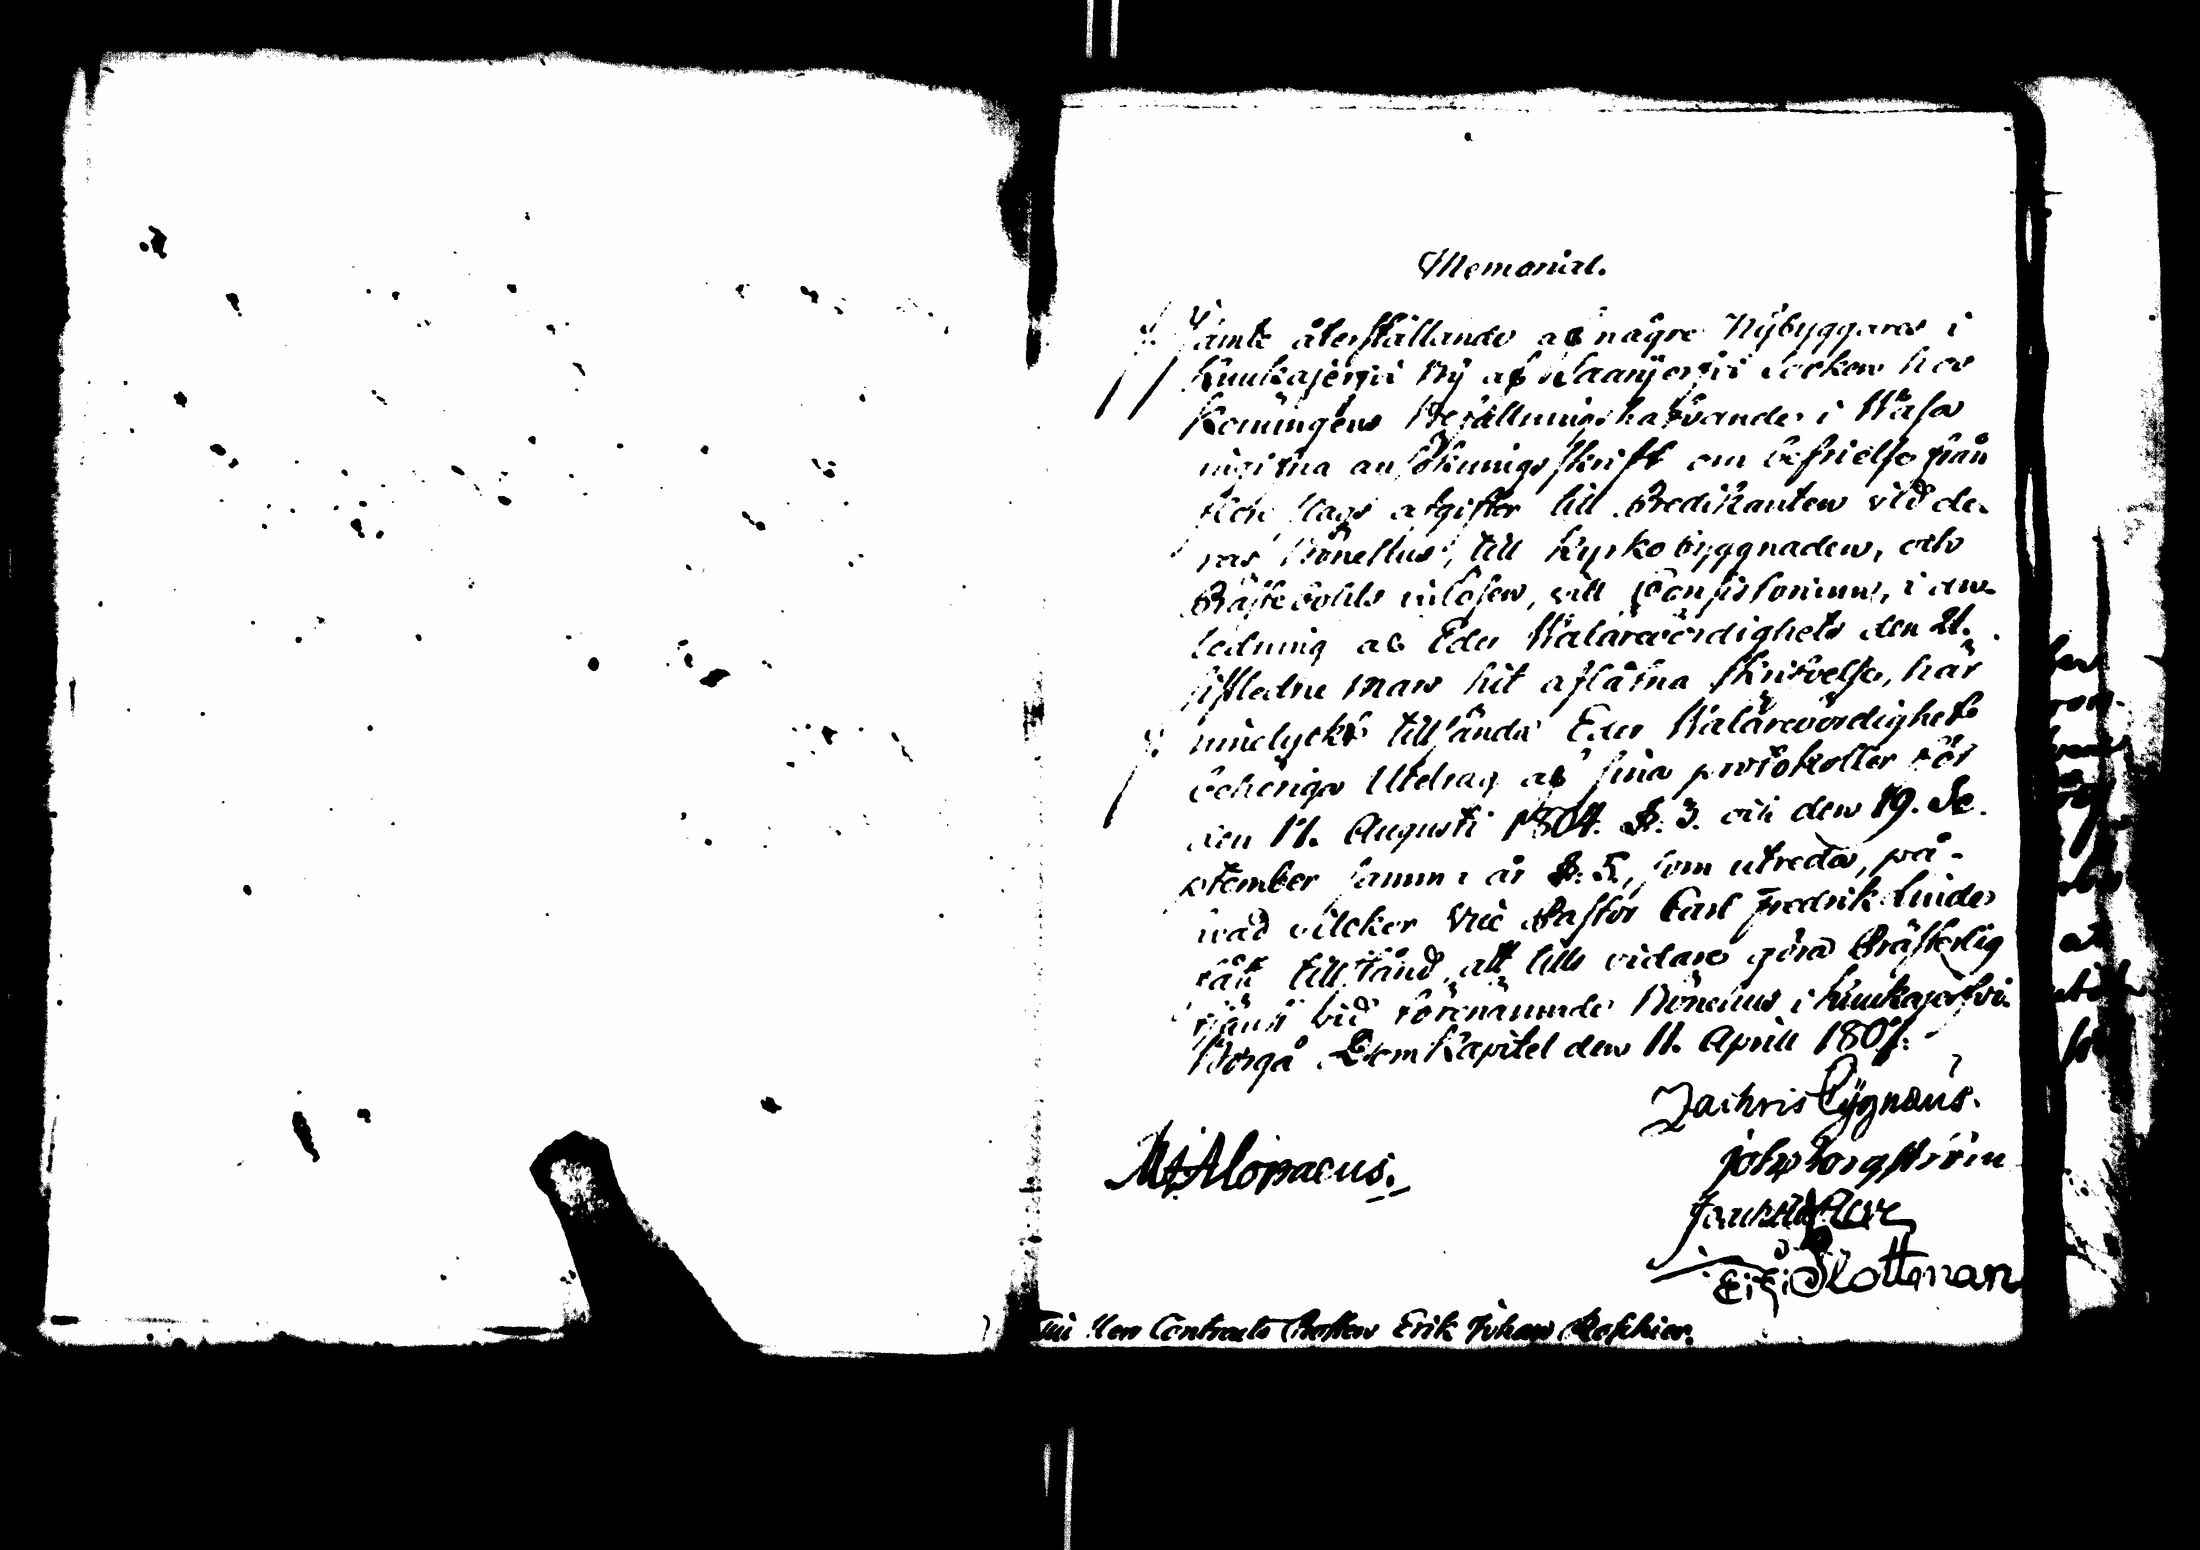 Memorial.
Jämte återställande af någre Nybyggares i
Kuukajärvi By af Saarijervi Socken hos
Konungens Befallningshafvande i Wasa
ingifna ansökningsskrift om befrielse från
flere slags afgifter till Predikanten vid de-
ras Bönehus, till Kyrkobyggnaden, och
Prästebohls inlösen, vill Consistorium, i an-
ledning af Eder Wälärevördighets den 21.
sistledne Mars hit aflåtna skrifvelse, här
innelyckt tillsända Eder Wälärevördighet
behöriga Utdrag af sina protokoller för
den 11. Augusti 1804. §. 3. och den 19. Se-
ptember samma år §. 5, som utreda, på
hvad vilckor Vice Pastor Carl Fredrik
fått tillstånd att tills vidare göra Prästerlig
tjänst vid förenämnde Bönehus i Kuukajervi.
Borgå DomKapitel den 11. Aprill
Zachris Cygnæus.
Joh. Borgström
M. Alopaeus.
Slottman
Till Herr Contracts Prosten Erik Johan